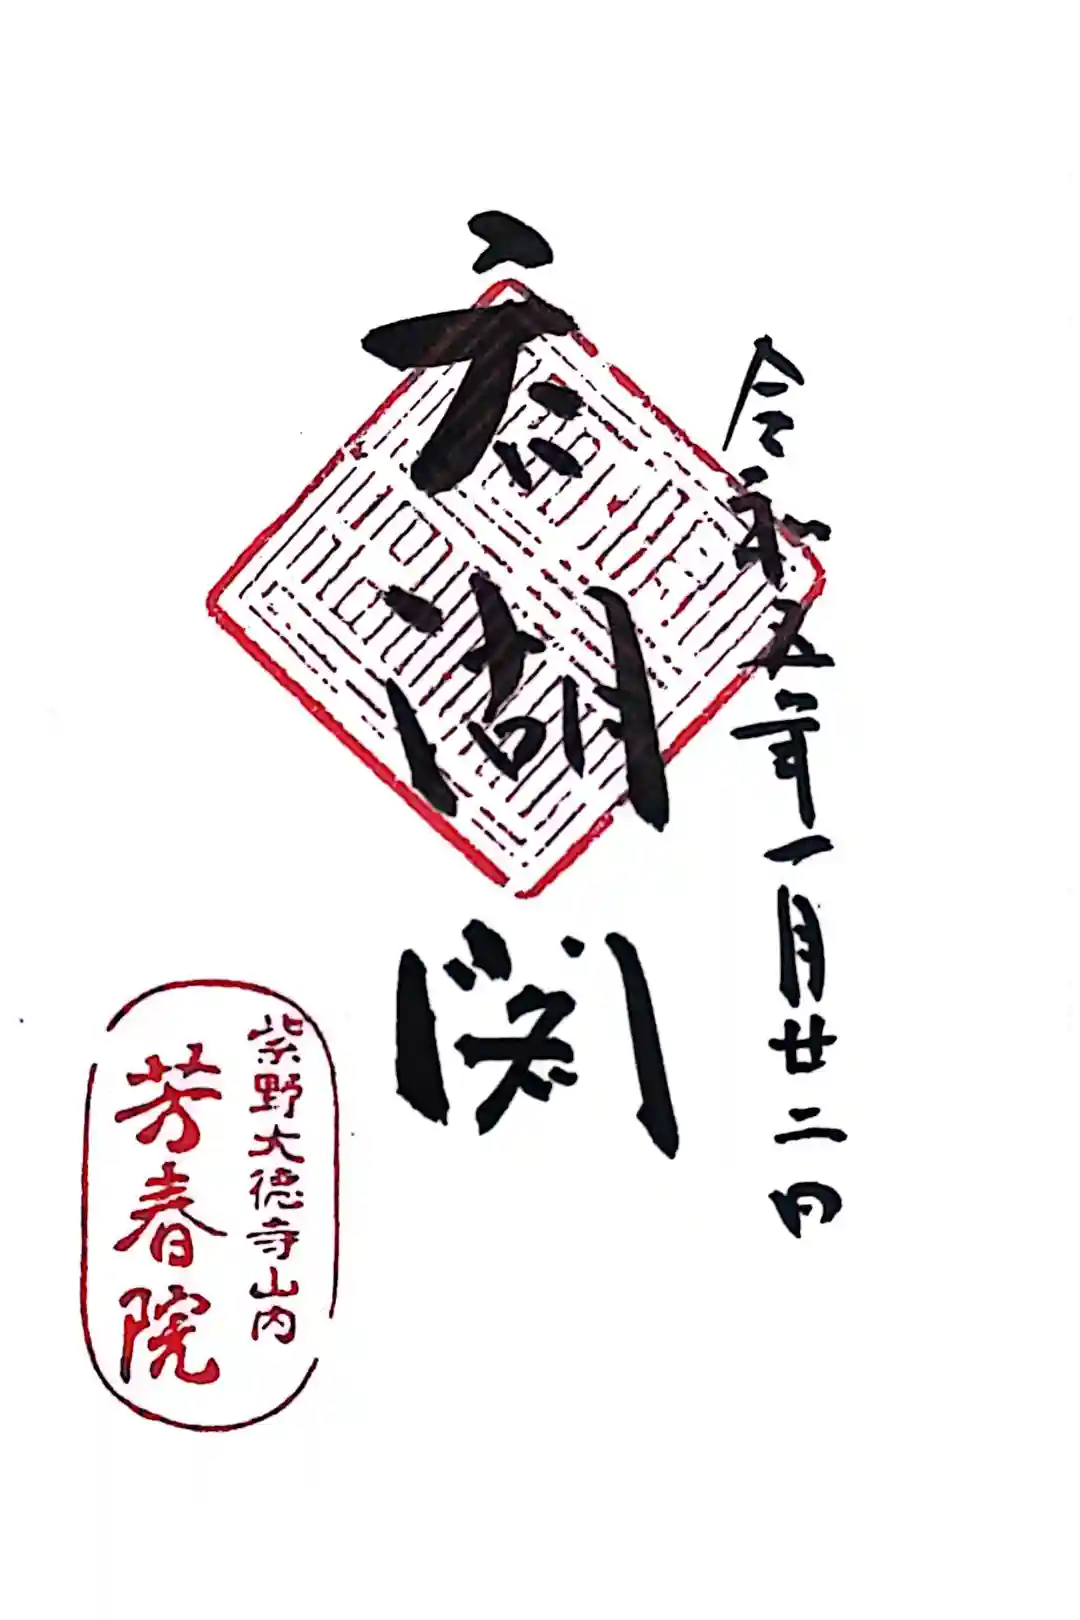 令和五年一月廿二日
呑湖閣
紫野大徳寺山内
芳春院